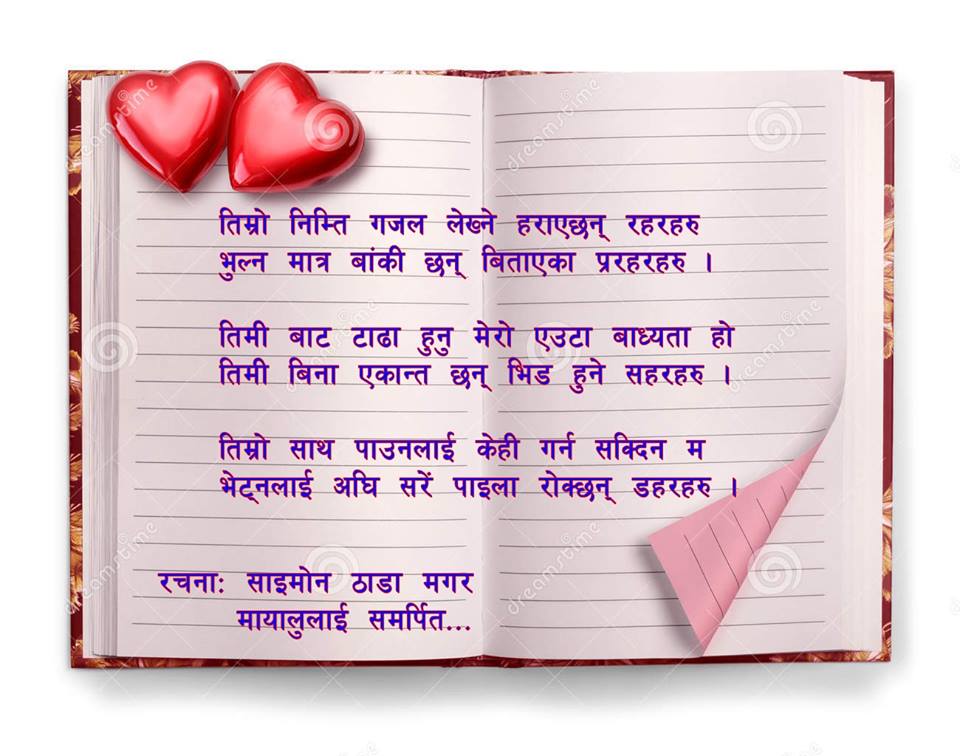 तिम्रो निम्ति गजल लेख्ने हराएछन् रहरहरु
भुल्न मात्र बांकी छन् बिताएका प्ररहरहरु ।
तिमी बाट टाढा हुनु मेरो एउटा बाध्यता हो
तिमी बिना एकान्त छन् भिड हुने सहरहरु ।
तिम्रो साथ पाउनलाई केही गर्न सक्दिन म
भेट्नलाई अघि सरें पाइला रोक्छन् डहरहरु ।
रचना: साइमोन ठाडा मगर
मायालुलाई समर्पित...